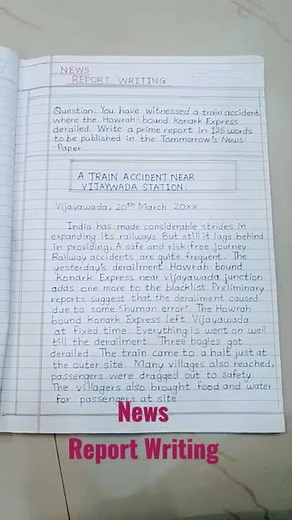 NEWS
REPORT WRITING
Question: You have witnessed a train accident
where the Howrah-bound Konark Express
derailed. Write a prime report in 125 words
to be published in the Tommorrow's News-
-Paper.
A TRAIN ACCIDENT NEAR
VIJAYWADA STATION.
Vijayawada, 20th March 20xx
India has made considerable strides in
expanding its railways. But still it lags behind
in providing, A safe and risk-free journey.
Railway accidents are quite frequent. The
yesterday's derailment Howrah-bound
Konark Express near vijaywada junction
adds one more to the blacklist Preliminary
reports suggest that the derailment caused
due to some 'human error'. The Howrah
bound Konark Express left Vijaywada
at fixed time. Everything is went on well
till the derailment. Three bogies got
derailed. The train came to a halt just at
the outer site. Many villages also reached,
passengers were dragged out to safety.
The villagers also brought food and water
for passengers at site
News
Report Writing